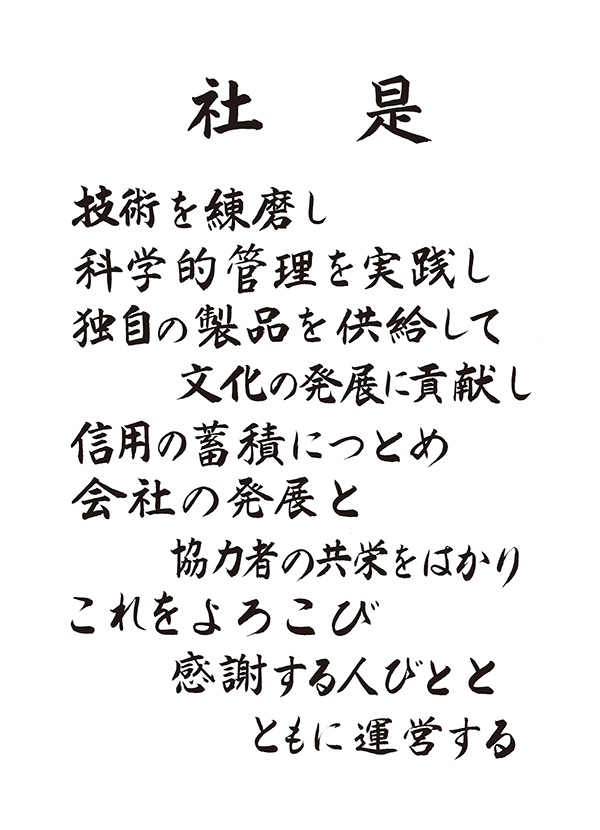 社是
技術を練磨し
科学的管理を実践し
独自の製品を供給して
文化の発展に貢献し
信用の蓄積につとめ
会社の発展と
協力者の共栄をはかり
これをよろこび
感謝する人びとと
ともに運営する